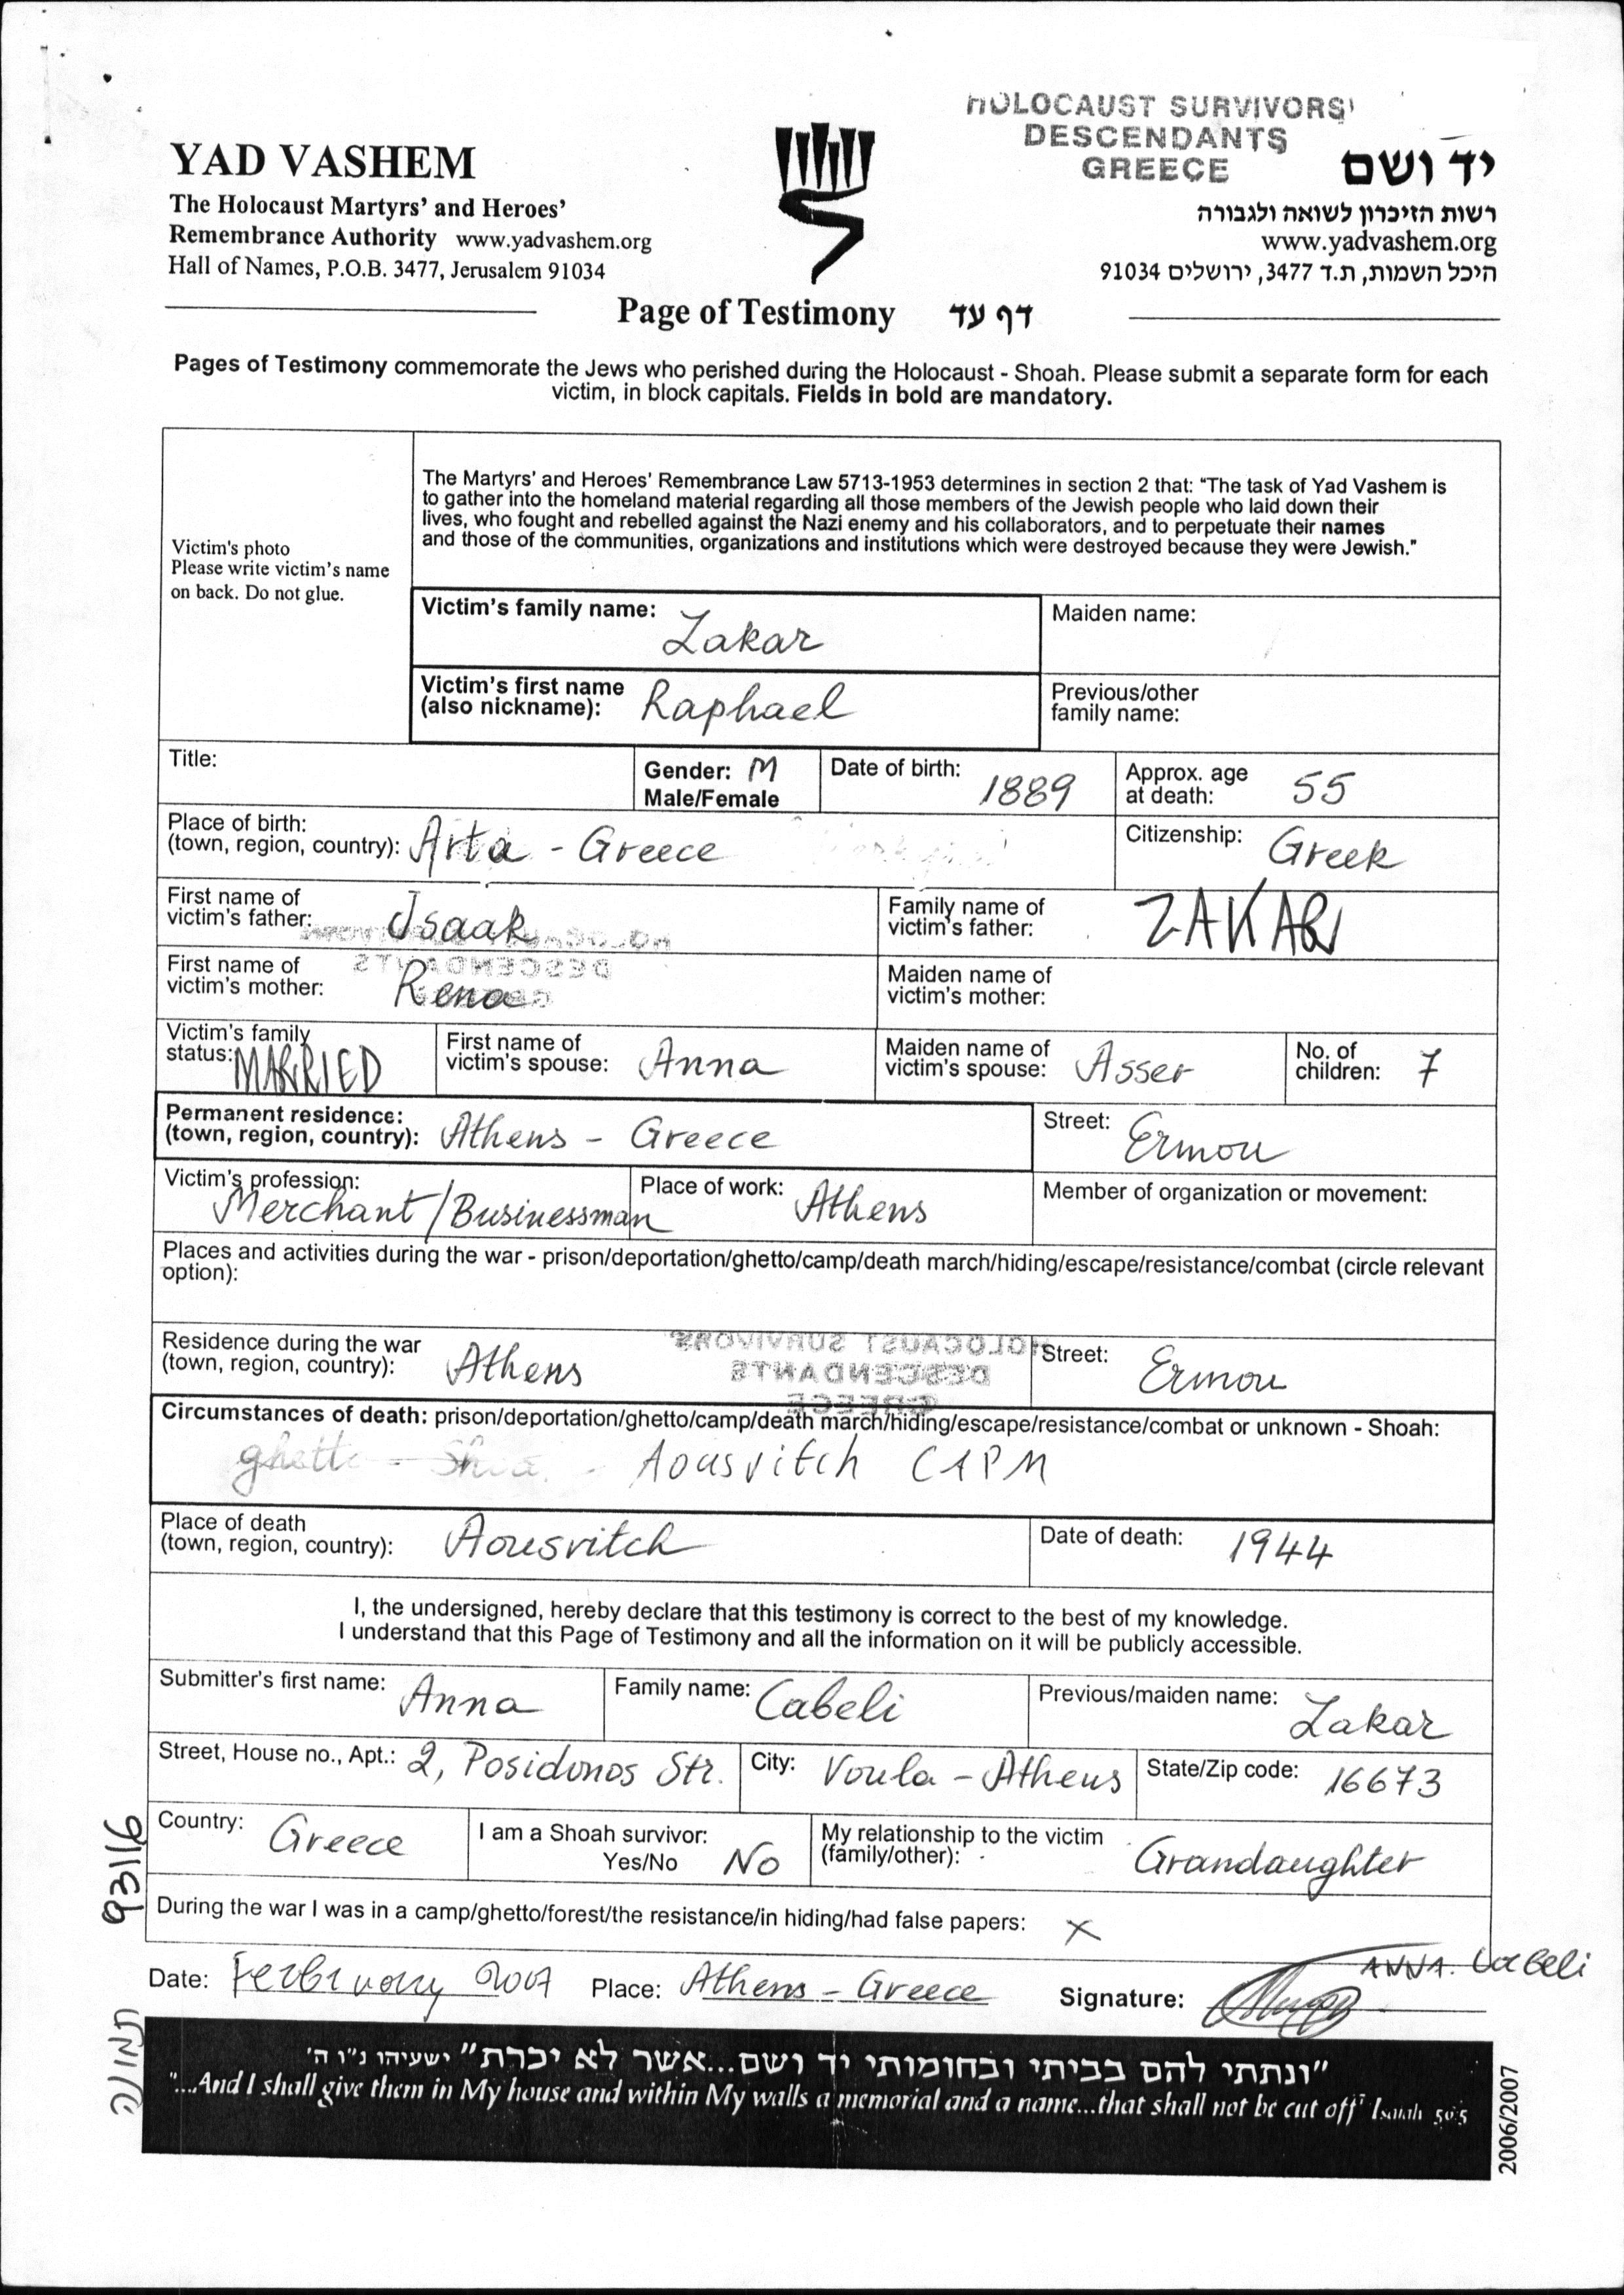 HOLOCAUST SURVIVORS'
DESCENDANTS
GREECE
YAD VASHEM
The Holocaust Martyrs' and Heroes'
Remembrance Authority www.yadvashem.org
Hall of Names, P.O.B. 3477, Jerusalem 91034
יד ושם
רשות הזיכרון לשואה ולגבורה
www.yadvashem.org
היכל השמות, ת.ד 3477, ירושלים 91034
Page of Testimony דף עד
Pages of Testimony commemorate the Jews who perished during the Holocaust - Shoah. Please submit a separate form for each
victim, in block capitals. Fields in bold are mandatory.
Victim's photo
Please write victim's name
on back. Do not glue.
The Martyrs' and Heroes' Remembrance Law 5713-1953 determines in section 2 that: "The task of Yad Vashem is
to gather into the homeland material regarding all those members of the Jewish people who laid down their
lives, who fought and rebelled against the Nazi enemy and his collaborators, and to perpetuate their names
and those of the communities, organizations and institutions which were destroyed because they were Jewish."
Victim's family name: Zakar
Maiden name:
Victim's first name
(also nickname): Raphael
Previous/other
family name:
Title:
Gender: M
Male/Female
Date of birth: 1889
Approx. age
at death: 55
Place of birth:
(town, region, country): Arta - Greece
Citizenship: Greek
First name of
victim's father: Isaak
Family name of
victim's father: ZAKAR
First name of
victim's mother: Rena
Maiden name of
victim's mother:
Victim's family
status: MARRIED
First name of
victim's spouse: Anna
Maiden name of
victim's spouse: Asser
No. of
children: 7
Permanent residence:
(town, region, country): Athens - Greece
Street: Ermou
Victim's profession:
Merchant/Businessman
Place of work: Athens
Member of organization or movement:
Places and activities during the war - prison/deportation/ghetto/camp/death march/hiding/escape/resistance/combat (circle relevant
option):
HOLOCAUST SURVIVORS
DESCENDANTS
GREECE
Residence during the war
(town, region, country): Athens
Street: Ermou
Circumstances of death: prison/deportation/ghetto/camp/death march/hiding/escape/resistance/combat or unknown - Shoah:
ghetto - Aousvitch CAPM
Place of death
(town, region, country): Aousvitch
Date of death: 1944
I, the undersigned, hereby declare that this testimony is correct to the best of my knowledge.
I understand that this Page of Testimony and all the information on it will be publicly accessible.
Submitter's first name: Anna
Family name: Cabeli
Previous/maiden name: Zakar
Street, House no., Apt.: 2, Posidonos Str.
City: Voula - Athens
State/Zip code: 16673
Country: Greece
I am a Shoah survivor:
Yes/No No
My relationship to the victim
(family/other): Grandaughter
During the war I was in a camp/ghetto/forest/the resistance/in hiding/had false papers: X
Date: Ferbruary 2007 Place: Athens - Greece Signature: ANNA. Cabeli
"ונתתי להם בביתי ובחומותי יד ושם...אשר לא יכרת" ישעיהו נ"ו ה'
"...And I shall give them in My house and within My walls a memorial and a name...that shall not be cut off" Isaiah 56:5
93116
תמונה
2006/2007